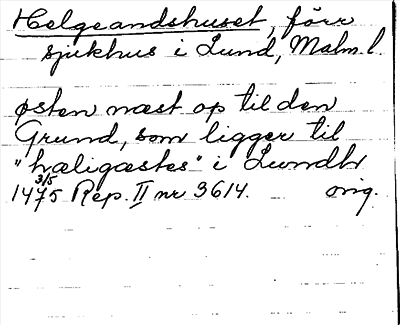 Helgeandshuset, förr
sjukhus i Lund, Malm. l.
østen næst op til den
Grund, som ligger til
"hæligæstes" i Lundh
3/5
1475 Rep. II nr 3614. orig.